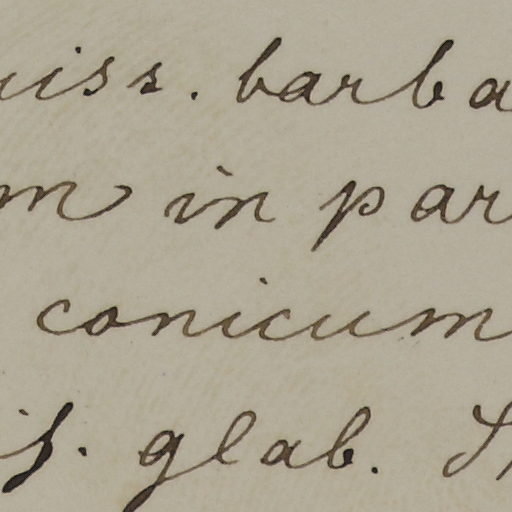 iss. barba
m in par
conicum
is. glab.